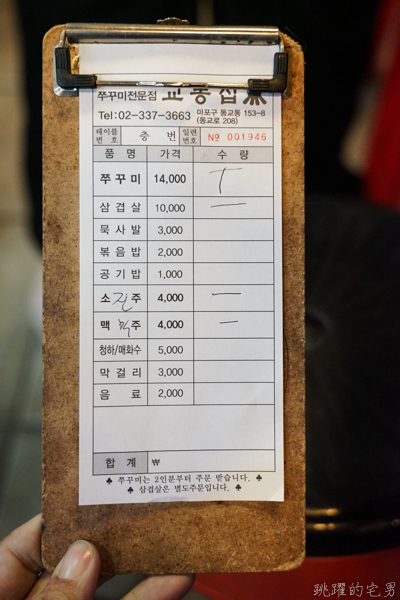 쭈꾸미전문점 교동집
Tel:02-337-3663 마포구 동교동 153-8
(동교로 208)
테이블번호 층 번 일련번호 № 001946
품 명 가 격 수 량
쭈꾸미 14,000 丅
삼겹살 10,000 一
묵사발 3,000
볶음밥 2,000
공기밥 1,000
소 진 주 4,000 一
맥 주 4,000 一
청하/매화수 5,000
막걸리 3,000
음 료 2,000
합 계 ₩
♣ 쭈꾸미는 2인분부터 주문 받습니다. ♣
♣ 삼겹살은 별도주문입니다. ♣
跳躍的宅男